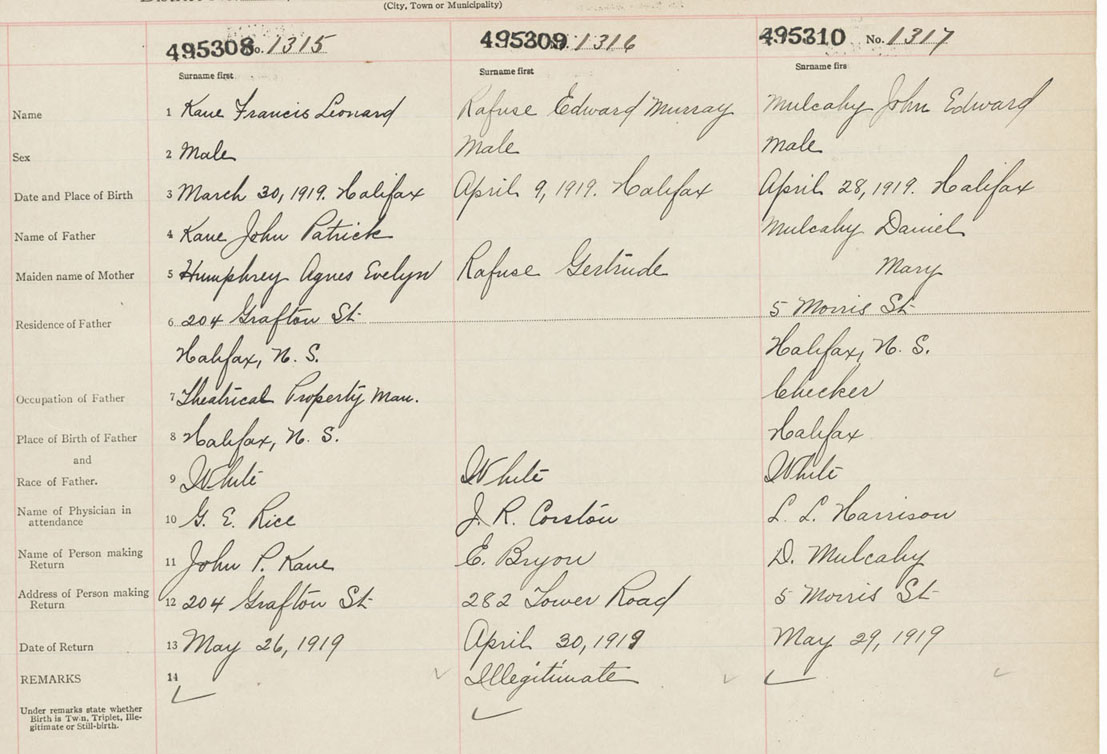 (City, Town or Municipality)
495308 No. 1315 495309 1316 495310 No. 1317
Surname first Surname first Surname firs
Name 1 Kane Francis Leonard Rafuse Edward Murray Mulcahy John Edward
Sex 2 Male Male Male
Date and Place of Birth 3 March 30, 1919. Halifax April 9, 1919. Halifax April 28, 1919. Halifax
Name of Father 4 Kane John Patrick Mulcahy Daniel
Maiden name of Mother 5 Humphrey Agnes Evelyn Rafuse Gertrude Mary
Residence of Father 6 204 Grafton St. 5 Morris St.
Halifax, N. S. Halifax, N. S.
Occupation of Father 7 Theatrical Property Man. Checker
Place of Birth of Father 8 Halifax, N. S. Halifax
and
Race of Father. 9 White White White
Name of Physician in
attendance 10 G. E. Rice J. R. Corston L. L. Harrison
Name of Person making
Return 11 John P. Kane E. Bryon D. Mulcahy
Address of Person making
Return 12 204 Grafton St 282 Tower Road 5 Morris St
Date of Return 13 May 26, 1919 April 30, 1919 May 29, 1919
REMARKS 14 Illegitimate
Under remarks state whether
Birth is Twin, Triplet, Ille-
gitimate or Still-birth.